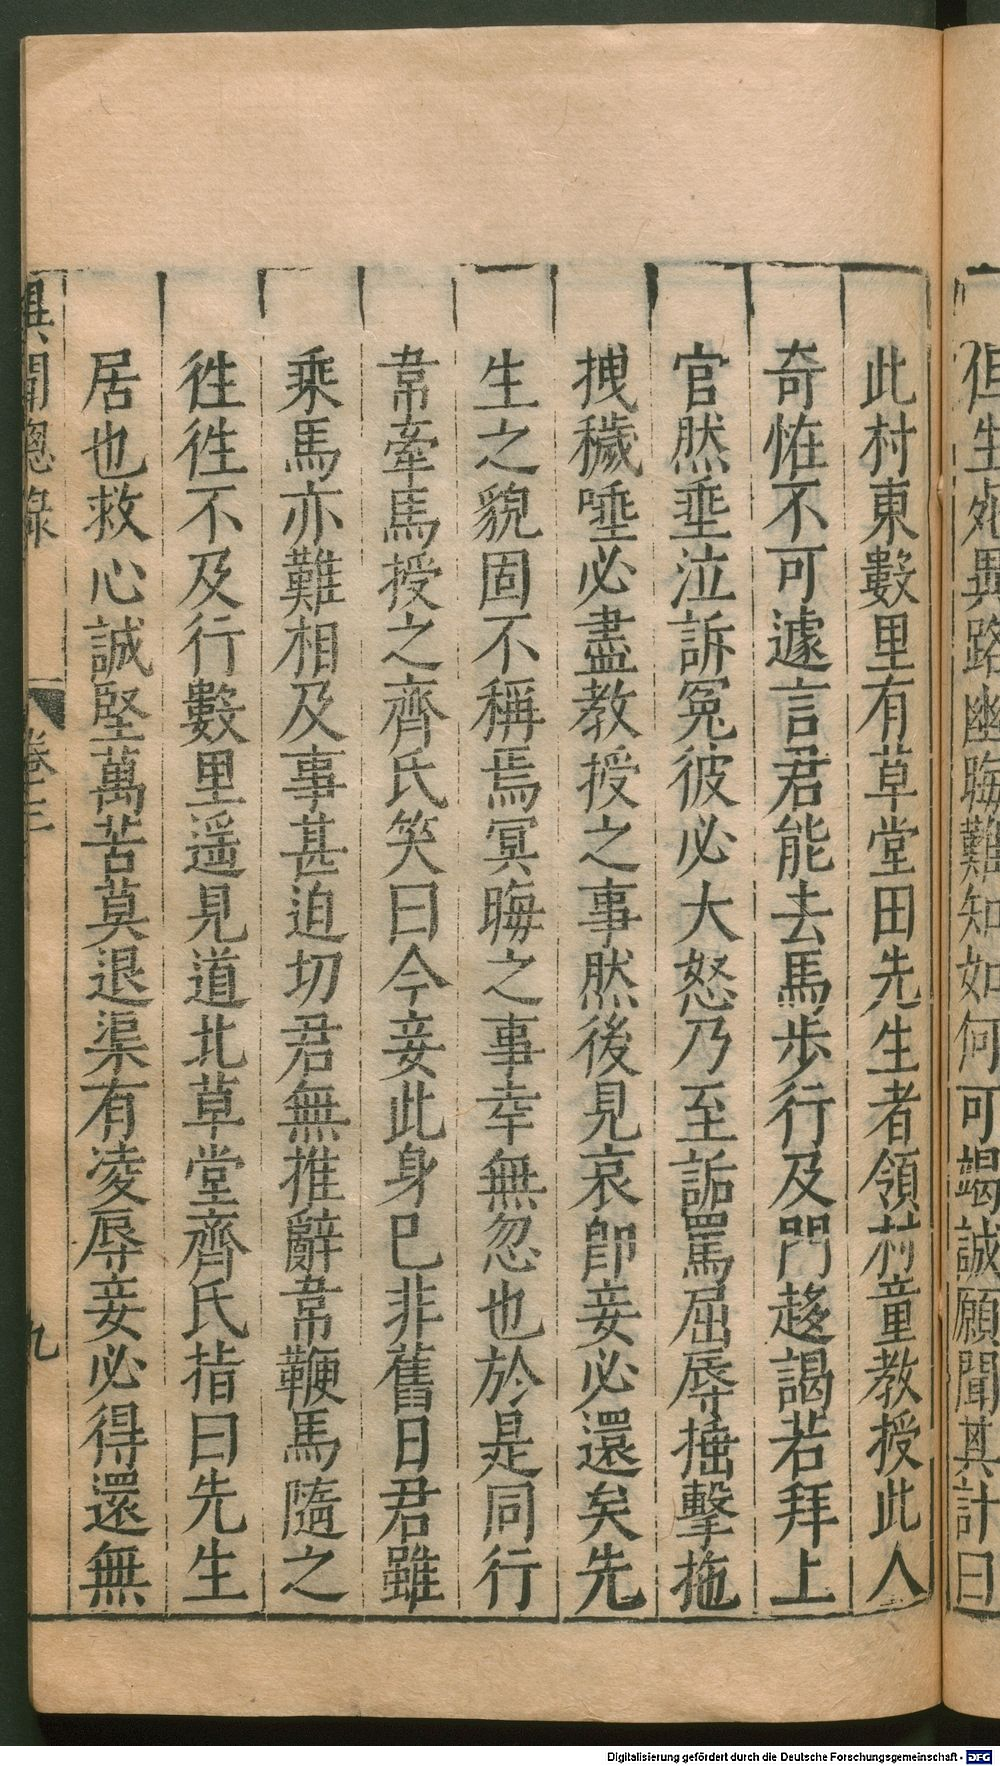 但生死異路幽晦難知如何可竭誠願聞其計曰
此村東數里有草堂田先生者領村童教授此人
奇恠不可遽言君能去馬步行及門趍謁若拜上
官然垂泣訴冤彼必大怒乃至詬罵屈辱捶擊拖
拽穢唾必盡教授之事然後見哀卽妾必還矣先
生之貌固不稱焉冥晦之事幸無忽也於是同行
韋牽馬授之齊氏笑曰今妾此身已非舊日君雖
乘馬亦難相及事甚迫切君無推辭韋鞭馬隨之
徃徃不及行數里遥見道北草堂齊氏指曰先生
居也救心誠堅萬苦莫退渠有凌辱妾必得還無
異聞總錄 卷三 九
Digitalisierung gefördert durch die Deutsche Forschungsgemeinschaft - DFG